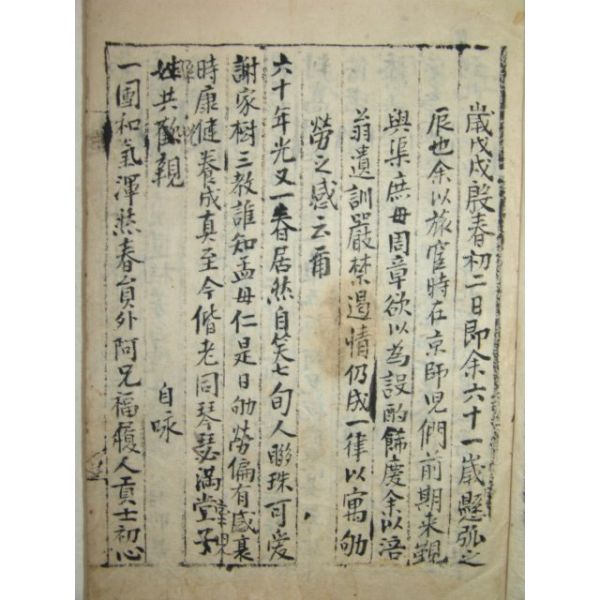 歲戊戌殷春初二日即余六十一歲懸弧之
辰也余以旅宦時在京師児們前期来覲
與渠庶母周章欲以為設酌餙慶余以浯
翁遺訓嚴禁遏情仍成一律以寓劬
勞之感云爾
六十年光又一春居然自笑七旬人聯珠可爱
謝家樹三教誰知孟母仁是日劬勞偏有感衰
時康健養成真至今偕老同琴瑟満堂子
姓共歡親 自咏
一團和氣渾然春員外阿兄福履人貢士初心